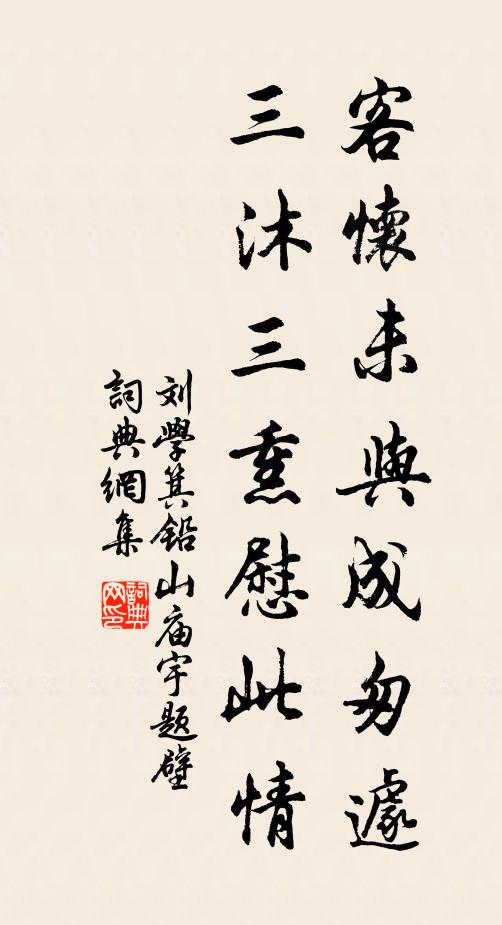 客懷未與成匆遽
三沐三熏慰此情
刘學箕铅山庙宇題壁
詞典網集
詞典網印